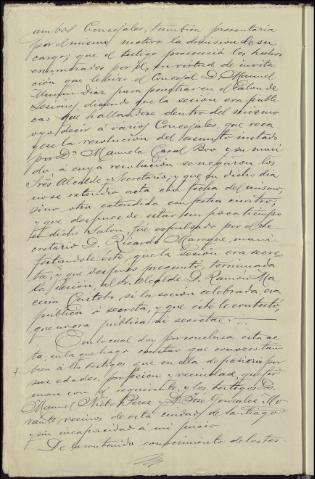 ambos Concejales, también presentaría
por el mismo motivo la dimisión de su
cargo; que el testigo presenció los hechos
enumerados por él, en virtud de invita
ción que le hizo el Concejal D. Manuel
Díaz para penetrar en el Salón de
Sesiones, diciendo que la sesión era públi
ca: que hallándose dentro del mismo
oyó decir á varios Concejales, que sea
que la resolución del asunto instado
por Dª Manuela Casal y su mari
do, á cuya resolución se negaron los
Sres Alcalde y Secretario, y que en dicho dia
no se extendió acta con fecha del mismo,
sino otra extendida con fecha
y que despues de estar un poco tiempo
en dicho Salon, fué expulsado por el Se
cretario D. Ricardo mani
festándole este que la sesión era secre
ta; y que despues preguntó, terminada
la sesión, al Sr. Alcalde D. Ramón
si la sesión celebrada era
pública ó secreta, y que este le contestó
que no era pública ni secreta.
Con lo cual doy por conclusa esta ac
ta, en la que hago constar que conozco tam
bien á los testigos que en ella deponen por
sus edades, profesión y vecindad, que fir
man con el requirente, y los testigos D.
Manuel Perez y D. José Gonzalez
vecinos de esta ciudad de Santiago
y sin incapacidad á mi juicio
De su contenido, conocimiento de los tes-